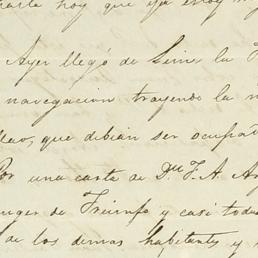 hoy que ya estoy
Ayer llegó de Lima la
navegacion trayendo la
que debian ser
Por una carta de D.n F. A.
de Triunfo y casi
de los demas habitantes y